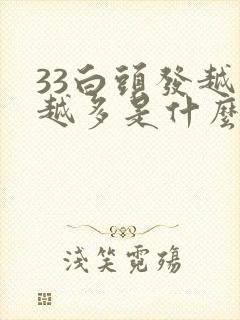 33白頭發越
越多是什麼
淺笑霓殤